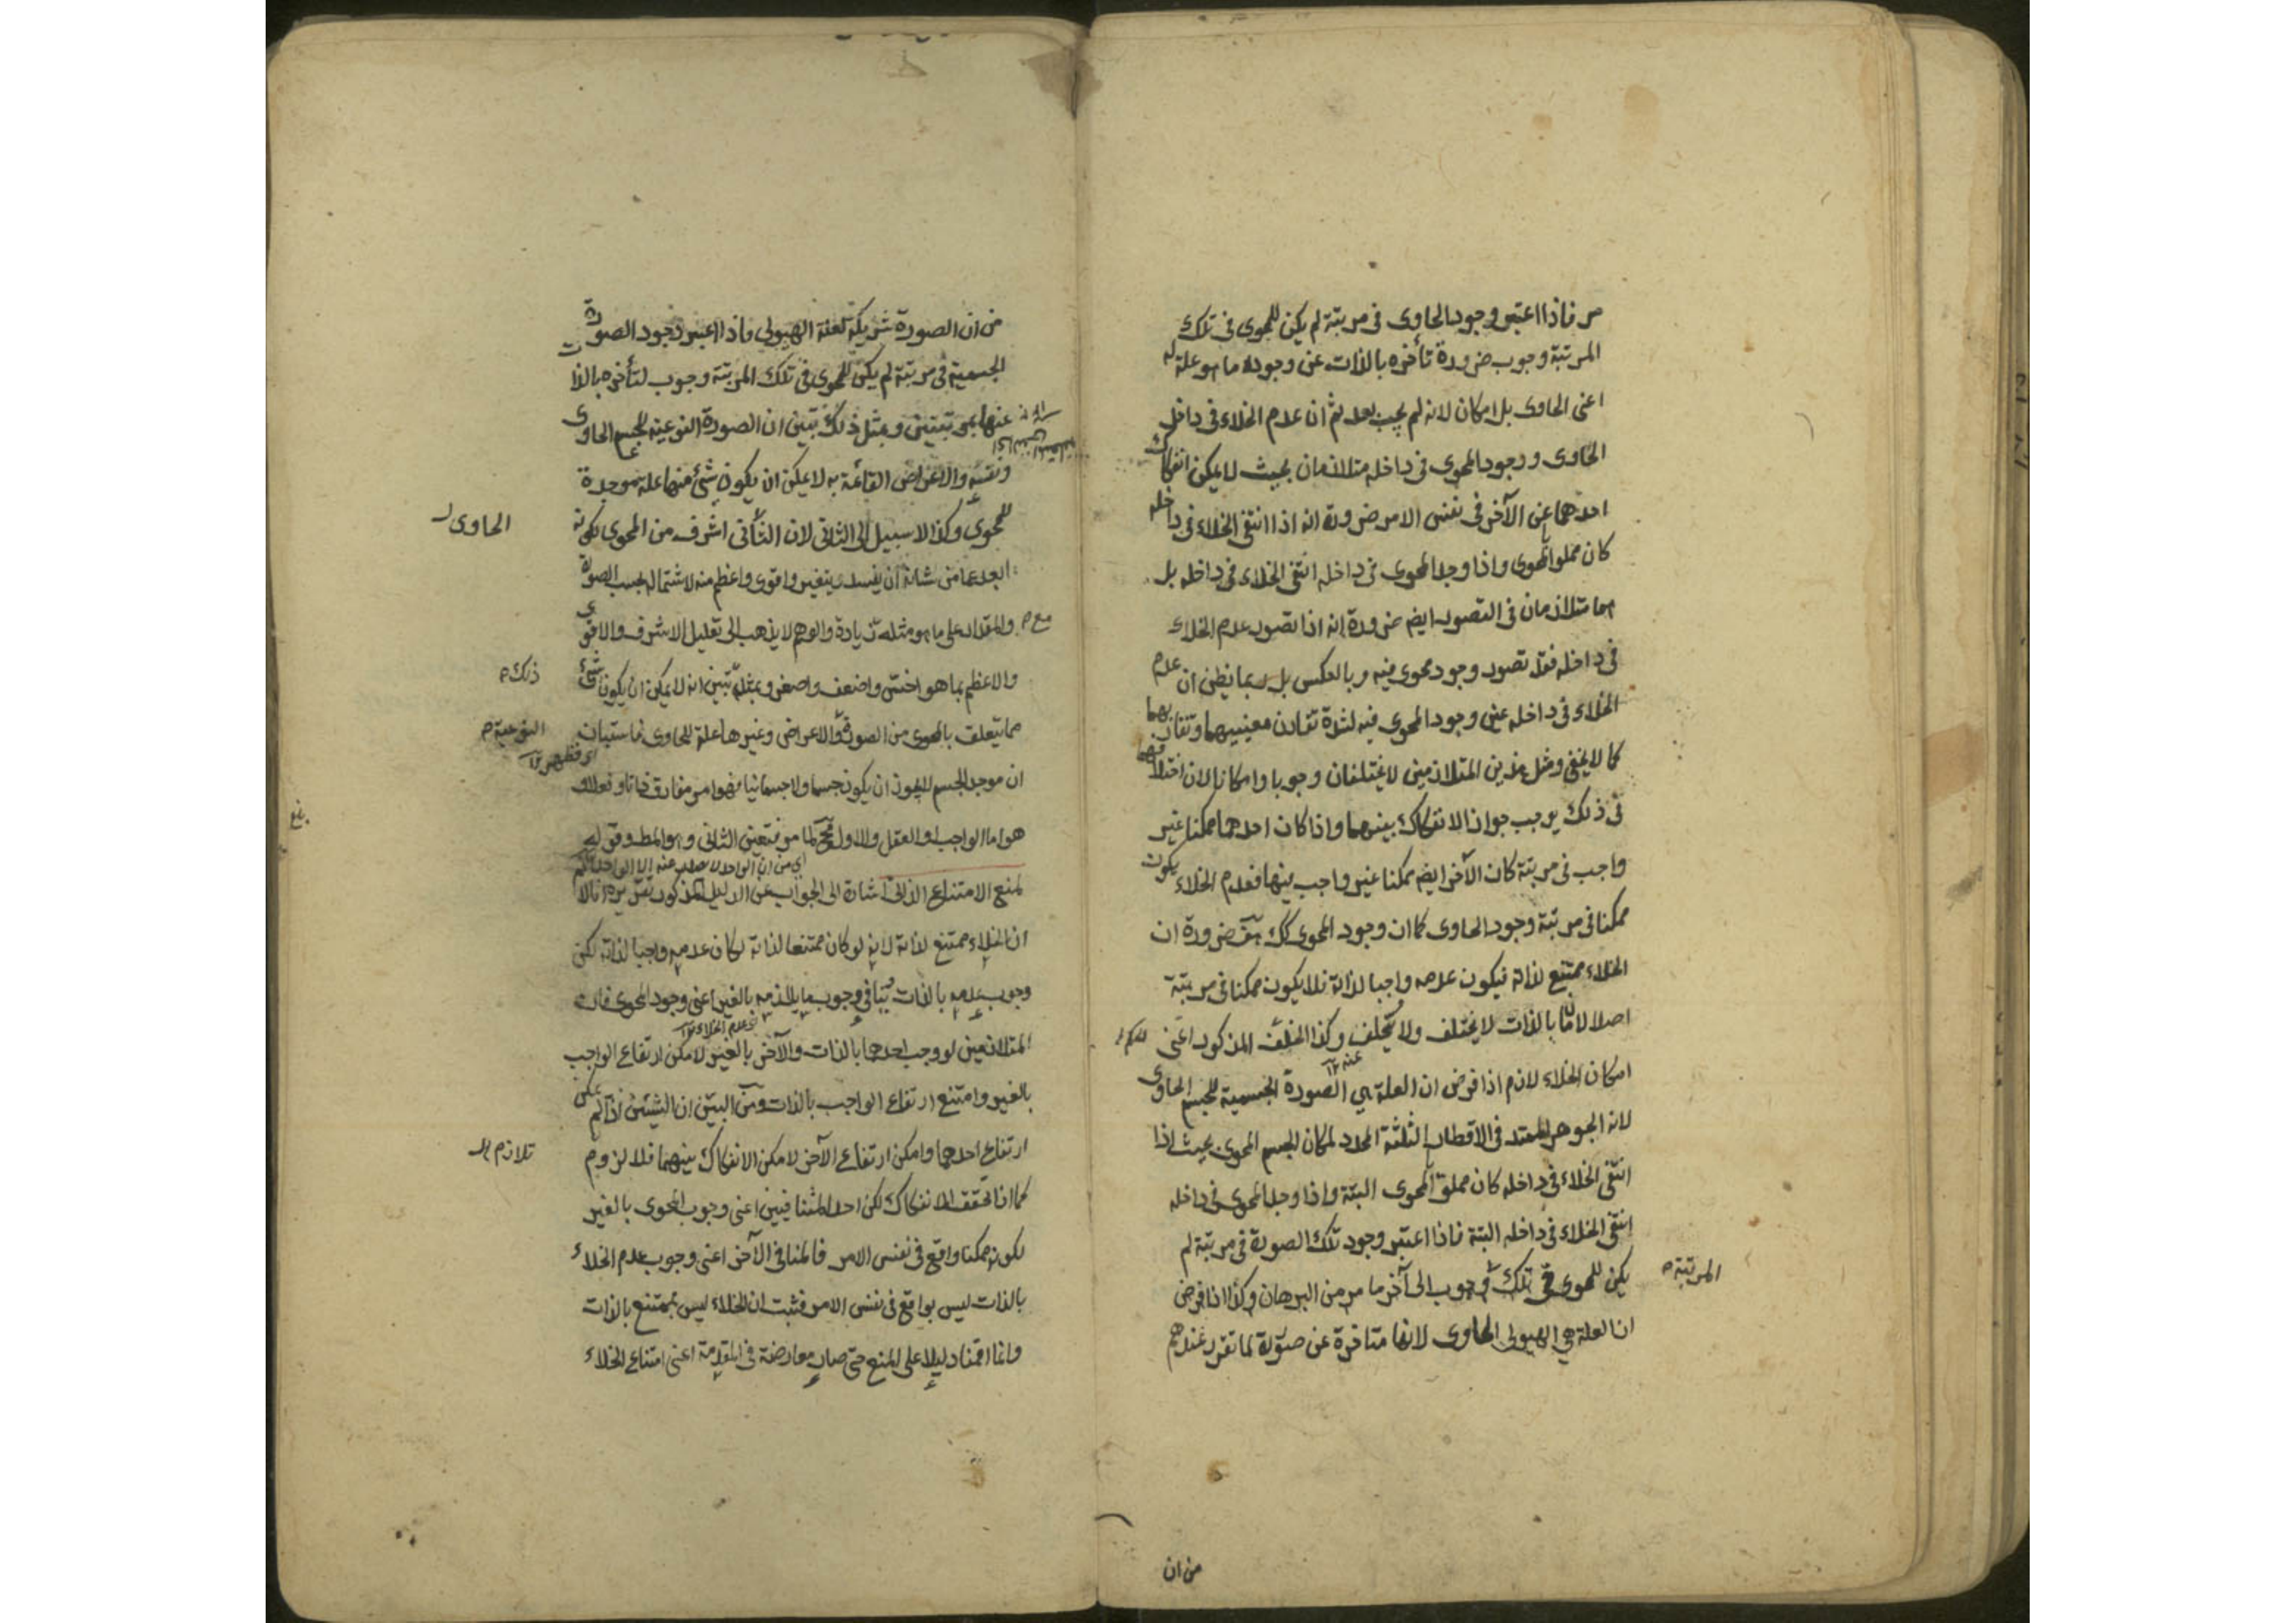 مر فاذا اعتبر وجود الحاوى فى مرتبة لم يكن للمحوى فى تلك
المرتبة وجوب ضرورة تأخره بالذات عن وجود ما هو علة له
اعنى الحاوى بل امكان لانه لم يجب بعد ثم ان عدم الخلاء فى داخل
الحاوى ووجود المحوى فى داخله متلازمان بحيث لا يمكن انفكاك
احدهما عن الآخر فى نفس الامر ضرورة انه اذا انتفى الخلاء فى داخله
كان مملوا بالمحوى واذا وجد المحوى فى داخله انتفى الخلاء فى داخله بل
هما متلازمان فى التصور ايضا ضرورة انه اذا تصور عدم الخلاء
فى داخله فقد تصور وجود محوى فيه وبالعكس بل ربما يظن ان عدم
الخلاء فى داخله عين وجود المحوى فيه لشدة تقارن معنييهما وتقاربهما
كما لا يخفى ومثل هذين المتلازمين لا يختلفان وجوبا وامكانا لان اختلافهما
فى ذلك يوجب جواز الانفكاك بينهما واذا كان احدهما ممكنا غير
واجب فى مرتبة كان الآخر ايضا ممكنا غير واجب فيها فعدم الخلاء يكون
ممكنا فى مرتبة وجود الحاوى كما ان وجود المحوى كك هف ضرورة ان
الخلاء ممتنع لذاته فيكون عدمه واجبا لذاته فلا يكون ممكنا فى مرتبة
اصلا لان ما بالذات لا يختلف ولا يتخلف وكذا الخلف المذكور اعنى
امكان الخلاء لازم اذا فرض ان العلة هى الصورة الجسمية للجسم الحاوى
لانه الجوهر الممتد فى الاقطار الثلثة المحدد لمكان الجسم المحوى بحيث اذا
انتفى الخلاء فى داخله كان مملوا بالمحوى البتة واذا وجد المحوى فى داخله
انتفى الخلاء فى داخله البتة فاذا اعتبر وجود تلك الصورة فى مرتبة لم
يكن للمحوى فى تلك وجوب الى آخر ما مر من البرهان وكذا اذا فرض
المرتبة
ان العلة هى الهيولى الحاوى لانها متاخرة عن صورة لما تقرر عندهم
من ان
من ان الصورة شريكة لعلة الهيولى فاذا اعتبر وجود الصورة
الجسمية فى مرتبة لم يكن للمحوى فى تلك المرتبة وجوب لتأخره بالذات
عنها بمرتبتين وبمثل ذلك تبين ان الصورة النوعية للجسم الحاوى
ونفسه والاعراض القائمة به لا يمكن ان يكون شئ منها علة موجدة
للمحوى وكذا لا سبيل الى الثانى لان الثانى اشرف من المحوى لكونه
الحاوى
ابعد عما من شانه ان يفسد ويتغير واقوى واعظم منه لاشتماله بحسب الصورة
والمقدار على ما هو مثله مع زيادة والوهم لا يذهب الى تعليل الاشرف والاقوى
والاعظم بما هو اخس واضعف واصغر وبمثله تبين انه لا يمكن ان يكون شئ
ذلك
مما يتعلق بالمحوى من الصورة والاعراض وغيرها علة للحاوى فاستبان
النوعية
اى فظهر ١٢
ان موجد الجسم لا يجوز ان يكون جسما ولا جسمانيا فهو امر مفارق ذاتا وفعلا و
هو اما الواجب او العقل والاول مح لما مر فتعين الثانى وهو المط وقوله
اى من ان الواحد لا يصدر عنه الا الواحد
لمنع الامتناع الذاتى اشارة الى الجواب عن الدليل المذكور تقريره انا لا
ان الخلاء ممتنع لذاته لانه لو كان ممتنعا لذاته لكان عدمه واجبا لذاته لكن
وجوب عدمه بالذات ينافى وجوب ما يلازمه بالغير اعنى وجود المحوى فان
اى عدم الخلاء ١٢
المتلازمين لو وجب احدهما بالذات والآخر بالغير لامكن ارتفاع الواجب
بالغير وامتنع ارتفاع الواجب بالذات ومن البين ان الشيئين اذا لم يمكن
ارتفاع احدهما وامكن ارتفاع الآخر لامكن الانفكاك بينهما فلا لزوم
تلازم
كما اذا تحقق الانفكاك لكن احد المتنافيين اعنى وجوب المحوى بالغير
لكونه ممكنا واقع فى نفس الامر فالمنافى الآخر اعنى وجوب عدم الخلاء
بالذات ليس بواقع فى نفس الامر فثبت ان الخلاء ليس بممتنع بالذات
وانما اقمنا دليلا على المنع حتى صار معارضة فى المقدمة اعنى امتناع الخلاء